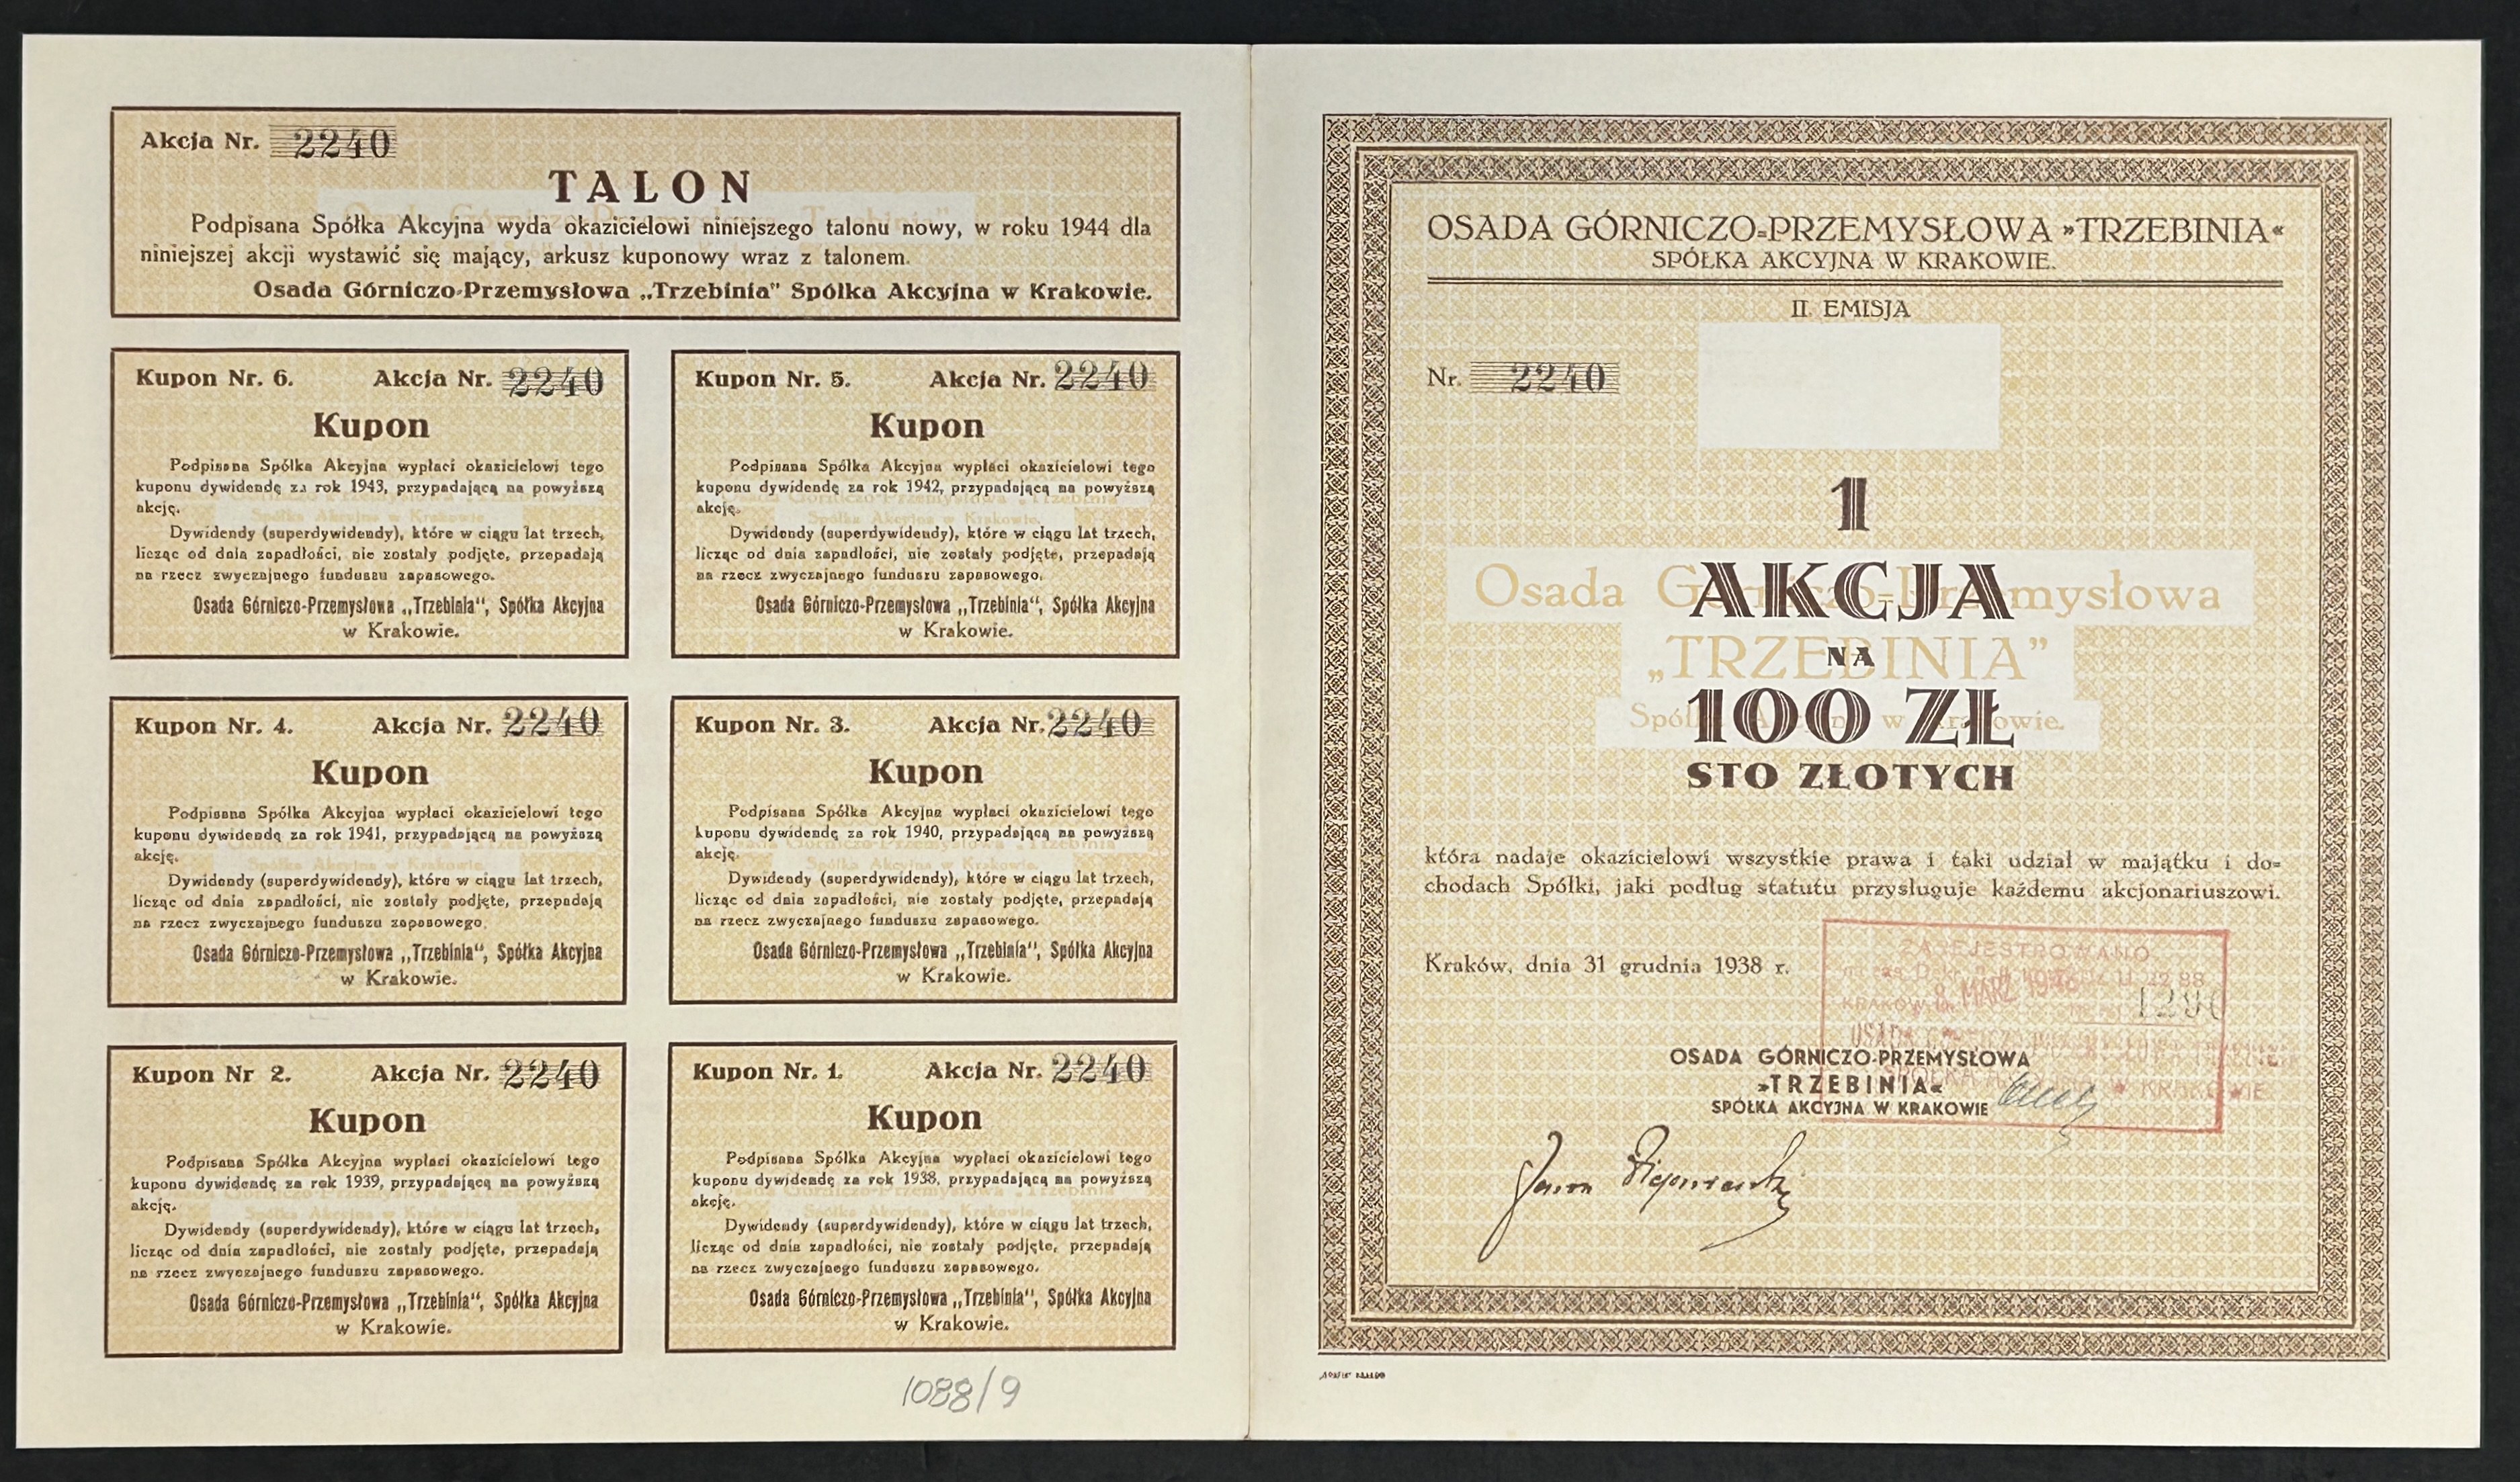 Akcja Nr. 2240
TALON
Podpisana Spółka Akcyjna wyda okazicielowi niniejszego talonu nowy, w roku 1944 dla
niniejszej akcji wystawić się mający, arkusz kuponowy wraz z talonem.
Osada Górniczo-Przemysłowa „Trzebinia" Spółka Akcyjna w Krakowie.
Kupon Nr. 6. Akcja Nr. 2240
Kupon
Podpisana Spółka Akcyjna wypłaci okazicielowi tego
kuponu dywidendę za rok 1943, przypadającą na powyższą
akcję.
Dywidendy (superdywidendy), które w ciągu lat trzech,
licząc od dnia zapadłości, nie zostały podjęte, przepadają
na rzecz zwyczajnego funduszu zapasowego.
Osada Górniczo-Przemysłowa „Trzebinia", Spółka Akcyjna
w Krakowie.
Kupon Nr. 5. Akcja Nr. 2240
Kupon
Podpisana Spółka Akcyjna wypłaci okazicielowi tego
kuponu dywidendę za rok 1942, przypadającą na powyższą
akcję.
Dywidendy (superdywidendy), które w ciągu lat trzech,
licząc od dnia zapadłości, nie zostały podjęte, przepadają
na rzecz zwyczajnego funduszu zapasowego.
Osada Górniczo-Przemysłowa „Trzebinia", Spółka Akcyjna
w Krakowie.
Kupon Nr. 4. Akcja Nr. 2240
Kupon
Podpisana Spółka Akcyjna wypłaci okazicielowi tego
kuponu dywidendę za rok 1941, przypadającą na powyższą
akcję.
Dywidendy (superdywidendy), które w ciągu lat trzech,
licząc od dnia zapadłości, nie zostały podjęte, przepadają
na rzecz zwyczajnego funduszu zapasowego.
Osada Górniczo-Przemysłowa „Trzebinia", Spółka Akcyjna
w Krakowie.
Kupon Nr. 3. Akcja Nr. 2240
Kupon
Podpisana Spółka Akcyjna wypłaci okazicielowi tego
kuponu dywidendę za rok 1940, przypadającą na powyższą
akcję.
Dywidendy (superdywidendy), które w ciągu lat trzech,
licząc od dnia zapadłości, nie zostały podjęte, przepadają
na rzecz zwyczajnego funduszu zapasowego.
Osada Górniczo-Przemysłowa „Trzebinia", Spółka Akcyjna
w Krakowie.
Kupon Nr 2. Akcja Nr. 2240
Kupon
Podpisana Spółka Akcyjna wypłaci okazicielowi tego
kuponu dywidendę za rok 1939, przypadającą na powyższą
akcję.
Dywidendy (superdywidendy), które w ciągu lat trzech,
licząc od dnia zapadłości, nie zostały podjęte, przepadają
na rzecz zwyczajnego funduszu zapasowego.
Osada Górniczo-Przemysłowa „Trzebinia", Spółka Akcyjna
w Krakowie.
Kupon Nr. 1. Akcja Nr. 2240
Kupon
Podpisana Spółka Akcyjna wypłaci okazicielowi tego
kuponu dywidendę za rok 1938, przypadającą na powyższą
akcję.
Dywidendy (superdywidendy), które w ciągu lat trzech,
licząc od dnia zapadłości, nie zostały podjęte, przepadają
na rzecz zwyczajnego funduszu zapasowego.
Osada Górniczo-Przemysłowa „Trzebinia", Spółka Akcyjna
w Krakowie.
1088/9
OSADA GÓRNICZO-PRZEMYSŁOWA »TRZEBINIA«
SPÓŁKA AKCYJNA W KRAKOWIE.
II. EMISJA
Nr. 2240
1
AKCJA
Osada Górniczo-Przemysłowa
„TRZEBINIA"
NA
100 ZŁ
Spółka Akcyjna w Krakowie.
STO ZŁOTYCH
która nadaje okazicielowi wszystkie prawa i taki udział w majątku i do-
chodach Spółki, jaki podług statutu przysługuje każdemu akcjonariuszowi.
Kraków, dnia 31 grudnia 1938 r.
ZAREJESTROWANO
KRAKÓW 8. MARZ
OSADA GÓRNICZO-PRZEMYSŁOWA
»TRZEBINIA«
SPÓŁKA AKCYJNA W KRAKOWIE